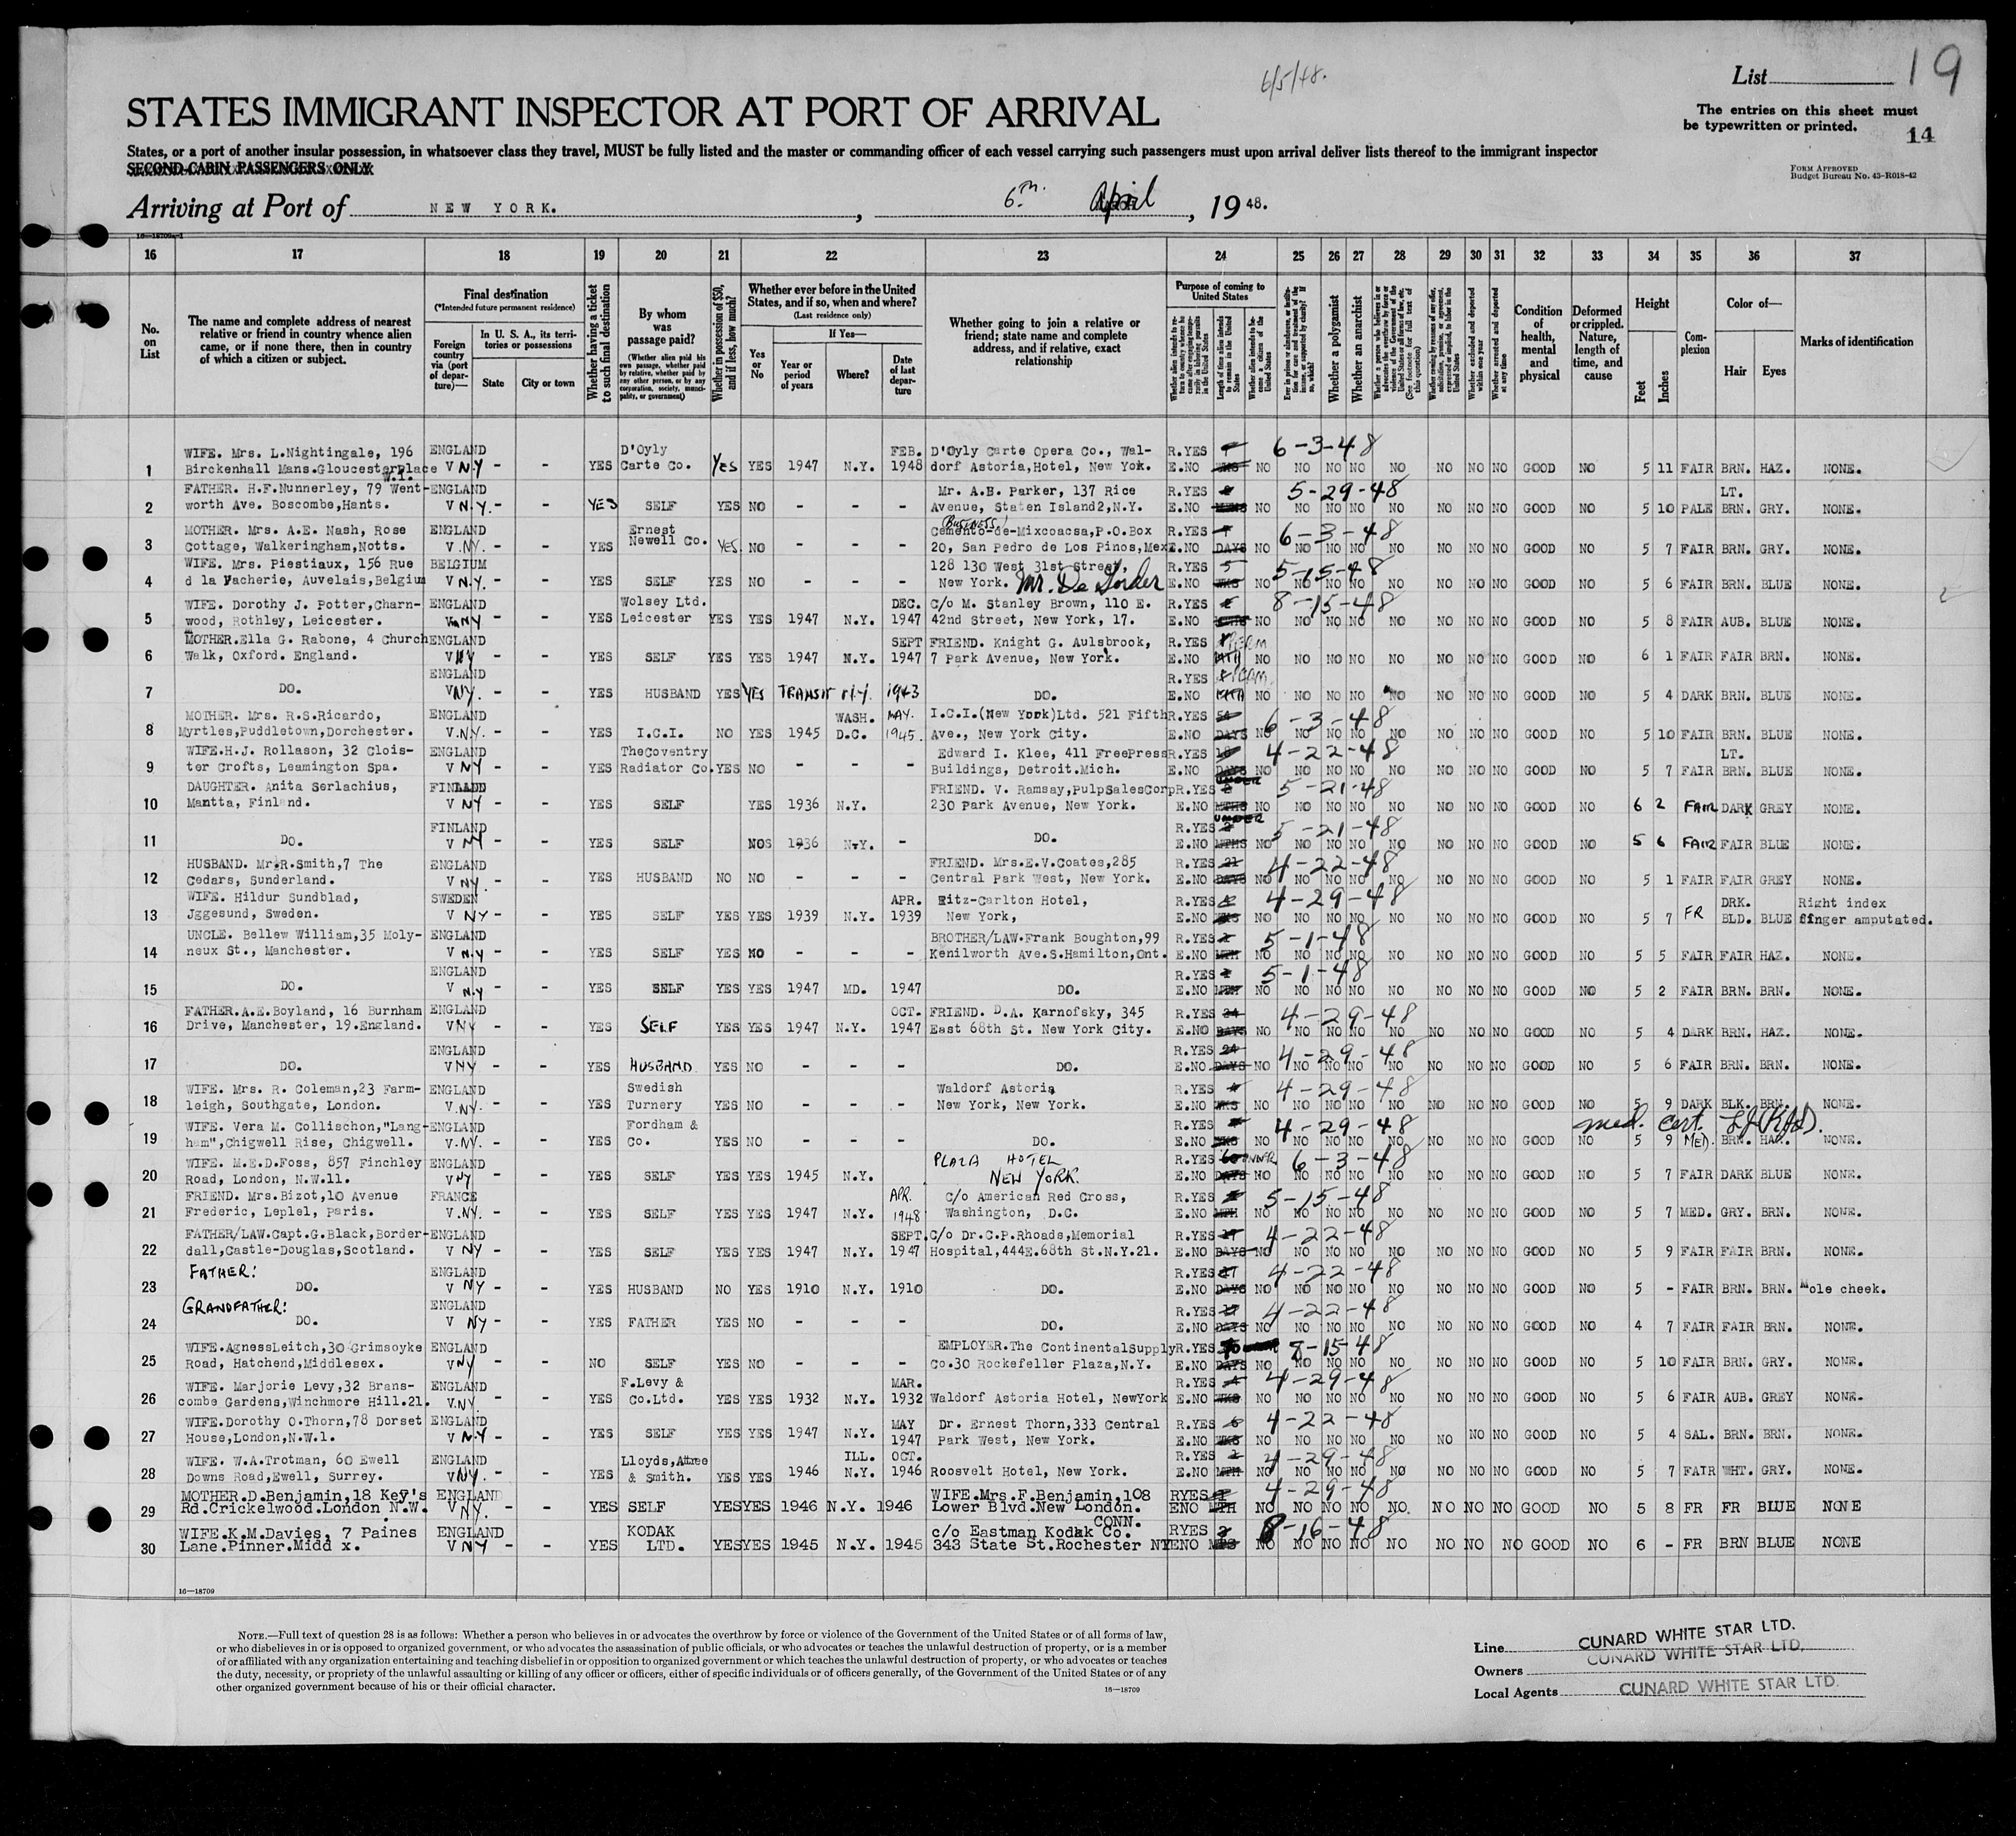 6/5/48.
List 19
The entries on this sheet must
be typewritten or printed.
14
STATES IMMIGRANT INSPECTOR AT PORT OF ARRIVAL
States, or a port of another insular possession, in whatsoever class they travel, MUST be fully listed and the master or commanding officer of each vessel carrying such passengers must upon arrival deliver lists thereof to the immigrant inspector
SECOND-CABIN PASSENGERS ONLY
Form Approved
Budget Bureau No. 43-R018-42
Arriving at Port of NEW YORK. , 6th. April , 1948.
16 17 18 19 20 21 22 23 24 25 26 27 28 29 30 31 32 33 34 35 36 37
No. on List
The name and complete address of nearest relative or friend in country whence alien came, or if none there, then in country of which a citizen or subject.
Final destination
(*Intended future permanent residence)
Foreign country via (port of departure)—
In U. S. A., its territories or possessions
State
City or town
Whether having a ticket to such final destination
By whom was passage paid?
(Whether alien paid his own passage, whether paid by relative, whether paid by any other person, or by any corporation, society, municipality, or government)
Whether in possession of $50, and if less, how much?
Whether ever before in the United States, and if so, when and where?
(Last residence only)
Yes or No
If Yes—
Year or period of years
Where?
Date of last departure
Whether going to join a relative or friend; state name and complete address, and if relative, exact relationship
Purpose of coming to United States
Whether a polygamist
Whether an anarchist
Condition of health, mental and physical
Deformed or crippled. Nature, length of time, and cause
Height
Feet
Inches
Complexion
Color of—
Hair
Eyes
Marks of identification
1 WIFE. Mrs. L.Nightingale, 196 Birckenhall Mans.Gloucesterplace W.1. ENGLAND V N.Y - - YES D'Oyly Carte Co. Yes YES 1947 N.Y. FEB. 1948 D'Oyly Carte Opera Co., Waldorf Astoria,Hotel, New Yok. R.YES E.NO WKS NO 6-3-48 NO NO NO NO NO NO NO GOOD NO 5 11 FAIR BRN. HAZ. NONE.
2 FATHER. H.F.Nunnerley, 79 Wentworth Ave. Boscombe,Hants. ENGLAND V N.Y. - - YES SELF YES NO - - - Mr. A.B. Parker, 137 Rice Avenue, Staten Island2,N.Y. R.YES E.NO NO 5-29-48 NO NO NO NO NO NO NO GOOD NO 5 10 PALE LT. BRN. GRY. NONE.
3 MOTHER. Mrs. A.E. Nash, Rose Cottage, Walkeringham,Notts. ENGLAND V.NY. - - YES Ernest Newell Co. YES. NO - - - (BUSINESS) Cemento-de-Mixcoacsa,P.O.Box 20, San Pedro de Los Pinos,Mex R.YES E.NO DAYS NO 6-3-48 NO NO NO NO NO NO NO GOOD NO 5 7 FAIR BRN. GRY. NONE.
4 WIFE. Mrs. Piestiaux, 156 Rue d la Vacherie, Auvelais,Belgium BELGIUM V N.Y. - - YES SELF YES NO - - - 128 130 West 31st Street, New York. R.YES 5 E.NO WKS NO 5-15-48 NO NO NO NO NO NO NO GOOD NO 5 6 FAIR BRN. BLUE NONE.
5 WIFE. Dorothy J. Potter,Charnwood, Rothley, Leicester. ENGLAND V NY - - YES Wolsey Ltd. Leicester YES YES 1947 N.Y. DEC. 1947 C/o M. Stanley Brown, 110 E. 42nd Street, New York, 17. R.YES E.NO NO 8-15-48 NO NO NO NO NO NO NO GOOD NO 5 8 FAIR AUB. BLUE NONE.
6 MOTHER.Ella G. Rabone, 4 Church Walk, Oxford. England. ENGLAND V NY - - YES SELF YES YES 1947 N.Y. SEPT 1947 FRIEND. Knight G. Aulsbrook, 7 Park Avenue, New York. R.YES E.NO MTH NO NO NO NO NO NO NO NO GOOD NO 6 1 FAIR FAIR BRN. NONE.
7 DO. ENGLAND V NY. - - YES HUSBAND YES YES TRANSIT N.Y. 1943 DO. R.YES E.NO MTH NO NO NO NO NO NO NO NO GOOD NO 5 4 DARK BRN. BLUE NONE.
8 MOTHER. Mrs. R.S.Ricardo, Myrtles,Puddletown,Dorchester. ENGLAND V.N.Y. - - YES I.C.I. NO YES 1945 WASH. D.C. MAY. 1945. I.C.I.(New York)Ltd. 521 Fifth Ave., New York City. R.YES E.NO DAYS NO 6-3-48 NO NO NO NO NO NO NO GOOD NO 5 10 FAIR BRN. BLUE NONE.
9 WIFE.H.J. Rollason, 32 Cloister Crofts, Leamington Spa. ENGLAND V NY - - YES TheCoventry Radiator Co. YES NO - - - Edward I. Klee, 411 FreePress Buildings, Detroit.Mich. R.YES E.NO DAYS NO 4-22-48 NO NO NO NO NO NO NO GOOD NO 5 7 FAIR LT. BRN. BLUE NONE.
10 DAUGHTER. Anita Serlachius, Mantta, Finland. FINLAND V NY - - YES SELF YES 1936 N.Y. FRIEND. V. Ramsay,PulpSalesCorp 230 Park Avenue, New York. R.YES UNDER 2 E.NO MTHS NO 5-21-48 NO NO NO NO NO NO NO GOOD NO 6 2 FAIR DARK GREY NONE.
11 DO. FINLAND V NY - - YES SELF 1936 N.Y. - DO. R.YES UNDER 2 E.NO MTHS NO 5-21-48 NO NO NO NO NO NO NO GOOD NO 5 6 FAIR FAIR BLUE NONE.
12 HUSBAND. Mr.R.Smith,7 The Cedars, Sunderland. ENGLAND V NY. - - YES HUSBAND NO NO - - - FRIEND. Mrs.E.V.Coates,285 Central Park West, New York. R.YES 21 E.NO DAYS NO 4-22-48 NO NO NO NO NO NO NO GOOD NO 5 1 FAIR FAIR GREY NONE.
13 WIFE. Hildur Sundblad, Jggesund, Sweden. SWEDEN V NY - - YES SELF YES YES 1939 N.Y. APR. 1939 Ritz-Carlton Hotel, New York, R.YES E.NO WKS NO 4-29-48 NO NO NO NO NO NO NO GOOD NO 5 7 FR DRK. BLD. BLUE Right index finger amputated.
14 UNCLE. Bellew William,35 Molyneux St., Manchester. ENGLAND V N.Y - - YES SELF YES NO - - - BROTHER/LAW.Frank Boughton,99 Kenilworth Ave.S.Hamilton,Ont. R.YES E.NO MTH NO 5-1-48 NO NO NO NO NO NO NO GOOD NO 5 5 FAIR FAIR HAZ. NONE.
15 DO. ENGLAND V N.Y - - YES SELF YES YES 1947 MD. 1947 DO. R.YES E.NO MTH NO 5-1-48 NO NO NO NO NO NO NO GOOD NO 5 2 FAIR BRN. BRN. NONE.
16 FATHER.A.E.Boyland, 16 Burnham Drive, Manchester, 19.England. ENGLAND V NY - - YES SELF YES YES 1947 N.Y. OCT. 1947 FRIEND. D.A. Karnofsky, 345 East 68th St. New York City. R.YES 24 E.NO DAYS NO 4-29-48 NO NO NO NO NO NO NO GOOD NO 5 4 DARK BRN. HAZ. NONE.
17 DO. ENGLAND V NY - - YES HUSBAND YES NO - - - DO. R.YES 24 E.NO DAYS NO 4-29-48 NO NO NO NO NO NO NO GOOD NO 5 6 FAIR BRN. BRN. NONE.
18 WIFE. Mrs. R. Coleman,23 Farmleigh, Southgate, London. ENGLAND V.NY. - - YES Swedish Turnery YES NO - - - Waldorf Astoria New York, New York. R.YES E.NO WKS NO 4-29-48 NO NO NO NO NO NO NO GOOD NO 5 9 DARK BLK. BRN. NONE.
med. cert.
19 WIFE. Vera M. Collischon,"Langham",Chigwell Rise, Chigwell. ENGLAND V.NY. - - YES Fordham & Co. YES NO - - - DO. R.YES E.NO WKS NO 4-29-48 NO NO NO NO NO NO NO GOOD NO 5 9 MED. BRN. HAZ. NONE.
20 WIFE. M.E.D.Foss, 857 Finchley Road, London, N.W.11. ENGLAND V NY - - YES SELF YES YES 1945 N.Y. PLAZA HOTEL NEW YORK. R.YES 60 E.NO DAYS NO 6-3-48 NO NO NO NO NO NO NO GOOD NO 5 7 FAIR DARK BLUE NONE.
21 FRIEND. Mrs.Bizot,10 Avenue Frederic, Leplel, Paris. FRANCE V.NY. - - YES SELF YES YES 1947 N.Y. APR. 1948 C/o American Red Cross, Washington, D.C. R.YES E.NO MTH NO 5-15-48 NO NO NO NO NO NO NO GOOD NO 5 7 MED. GRY. BRN. NONE.
22 FATHER/LAW.Capt.G.Black,Borderdall,Castle-Douglas,Scotland. ENGLAND V NY - - YES SELF YES YES 1947 N.Y. SEPT. 1947 C/o Dr.C.P.Rhoads,Memorial Hospital,444E.68th St.N.Y.21. R.YES 17 E.NO DAYS NO 4-22-48 NO NO NO NO NO NO NO GOOD NO 5 9 FAIR FAIR BRN. NONE.
23 FATHER: DO. ENGLAND V NY - - YES HUSBAND NO YES 1910 N.Y. 1910 DO. R.YES 17 E.NO DAYS NO 4-22-48 NO NO NO NO NO NO NO GOOD NO 5 - FAIR BRN. BRN. Mole cheek.
24 GRANDFATHER: DO. ENGLAND V NY - - YES FATHER YES NO - - - DO. R.YES 17 E.NO DAYS NO 4-22-48 NO NO NO NO NO NO NO GOOD NO 4 7 FAIR FAIR BRN. NONE.
25 WIFE.AgnessLeitch,30 Grimsoyke Road, Hatchend,Middlesex. ENGLAND V NY - - NO SELF YES NO - - - EMPLOYER.The ContinentalSupply Co.30 Rockefeller Plaza,N.Y. R.YES E.NO DAYS NO 8-15-48 NO NO NO NO NO NO NO GOOD NO 5 10 FAIR BRN. GRY. NONE.
26 WIFE. Marjorie Levy,32 Branscombe Gardens,Winchmore Hill.21. ENGLAND V.NY. - - YES F.Levy & Co.Ltd. YES YES 1932 N.Y. MAR. 1932 Waldorf Astoria Hotel, NewYork R.YES E.NO WKS NO 4-29-48 NO NO NO NO NO NO NO GOOD NO 5 6 FAIR AUB. GREY NONE.
27 WIFE.Dorothy O.Thorn,78 Dorset House,London,N.W.1. ENGLAND V N.Y - - YES SELF YES YES 1947 N.Y. MAY 1947 Dr. Ernest Thorn,333 Central Park West, New York. R.YES 6 E.NO WKS NO 4-22-48 NO NO NO NO NO NO NO GOOD NO 5 4 SAL. BRN. BRN. NONE.
28 WIFE. W.A.Trotman, 60 Ewell Downs Road,Ewell, Surrey. ENGLAND V NY. - - YES Lloyds,Attree & Smith. YES YES 1946 ILL. N.Y. OCT. 1946 Roosvelt Hotel, New York. R.YES E.NO MTH NO 4-29-48 NO NO NO NO NO NO NO GOOD NO 5 7 FAIR WHT. GRY. NONE.
29 MOTHER.D.Benjamin,18 Key's Rd.Crickelwood.London N.W. ENGLAND V NY. - - YES SELF YES YES 1946 N.Y. 1946 WIFE.Mrs.F.Benjamin,108 Lower Blvd.New London. CONN. RYES ENO MTH NO 4-29-48 NO NO NO NO. NO NO NO GOOD NO 5 8 FR FR BLUE NONE
30 WIFE.K.M.Davies, 7 Paines Lane.Pinner.Midd x. ENGLAND V NY - - YES KODAK LTD. YES YES 1945 N.Y. 1945 c/o Eastman Kodak Co. 343 State St.Rochester NY RYES ENO NO 8-16-48 NO NO NO NO NO NO NO GOOD NO 6 - FR BRN BLUE NONE
16—18709
Note.—Full text of question 28 is as follows: Whether a person who believes in or advocates the overthrow by force or violence of the Government of the United States or of all forms of law,
or who disbelieves in or is opposed to organized government, or who advocates the assassination of public officials, or who advocates or teaches the unlawful destruction of property, or is a member
of or affiliated with any organization entertaining and teaching disbelief in or opposition to organized government or which teaches the unlawful destruction of property, or who advocates or teaches
the duty, necessity, or propriety of the unlawful assaulting or killing of any officer or officers, either of specific individuals or of officers generally, of the Government of the United States or of any
other organized government because of his or their official character.
16—18709
Line CUNARD WHITE STAR LTD.
Owners CUNARD WHITE STAR LTD.
Local Agents CUNARD WHITE STAR LTD.